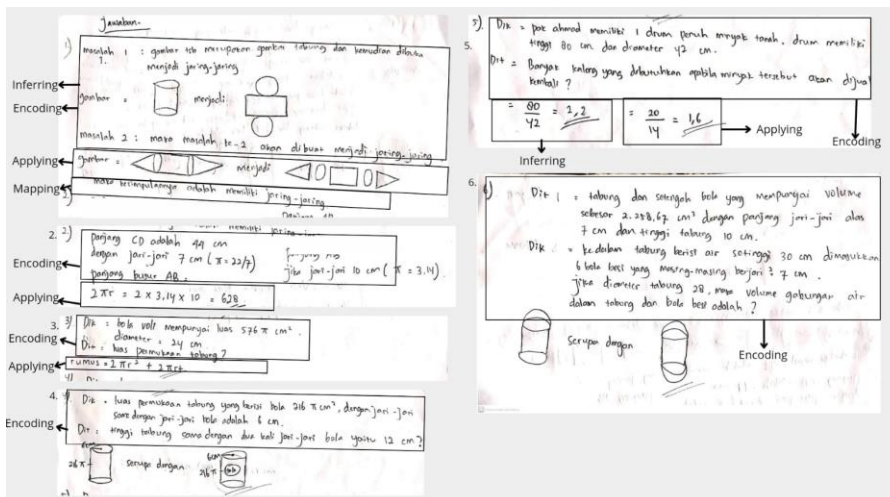 Jawaban.
1) masalah 1 : gambar tsb merupakan gambar tabung dan kemudian dibuka
1.
menjadi jaring-jaring
Inferring
Encoding
gambar = menjadi
masalah 2 : maka masalah ke-2 akan dibuat menjadi jaring-jaring
Applying
gambar = menjadi
Mapping
maka kesimpulannya adalah memiliki jaring-jaring.
2. 2) panjang CD adalah 44 cm
dengan jari-jari 7 cm (π = 22/7)
jika jari-jari 10 cm (π = 3.14).
Encoding
panjang busur AB.
Applying
2πr = 2 x 3,14 x 10 = 628
3. 3) Dik : bola voli mempunyai luas 576 π cm².
Encoding
diameter = 24 cm
Dit : luas permukaan tabung?
Applying
rumus = 2πr² + 2πrt
4. Dik . luas permukaan tabung yang berisi bola 216 π cm², dengan jari-jari
sama dengan jari-jari bola adalah 6 cm.
Encoding
Dit : tinggi tabung sama dengan dua kali jari-jari bola yaitu 12 cm?
6cm
216 π serupa dengan 216 π
5). Dik = pak ahmad memiliki 1 drum penuh minyak tanah, drum memiliki
5.
tinggi 80 cm dan diameter 42 cm.
Dit = Banyak kaleng yang dibutuhkan apabila minyak tersebut akan dijual
kembali ?
= 80/42 = 1,2
= 20/14 = 1,6
Applying
Encoding
Inferring
6. 6) Dit 1 = tabung dan setengah bola yang mempunyai volume
sebesar 2.258,67 cm³ dengan panjang jari-jari alas
7 cm dan tinggi tabung 10 cm.
Dik = kedalam tabung berisi air setinggi 30 cm dimasukkan
6 bola besi yang masing-masing berjari² 7 cm.
jika diameter tabung 28, maka volume gabungan air
dalam tabung dan bola besi adalah ?
serupa dengan
Encoding